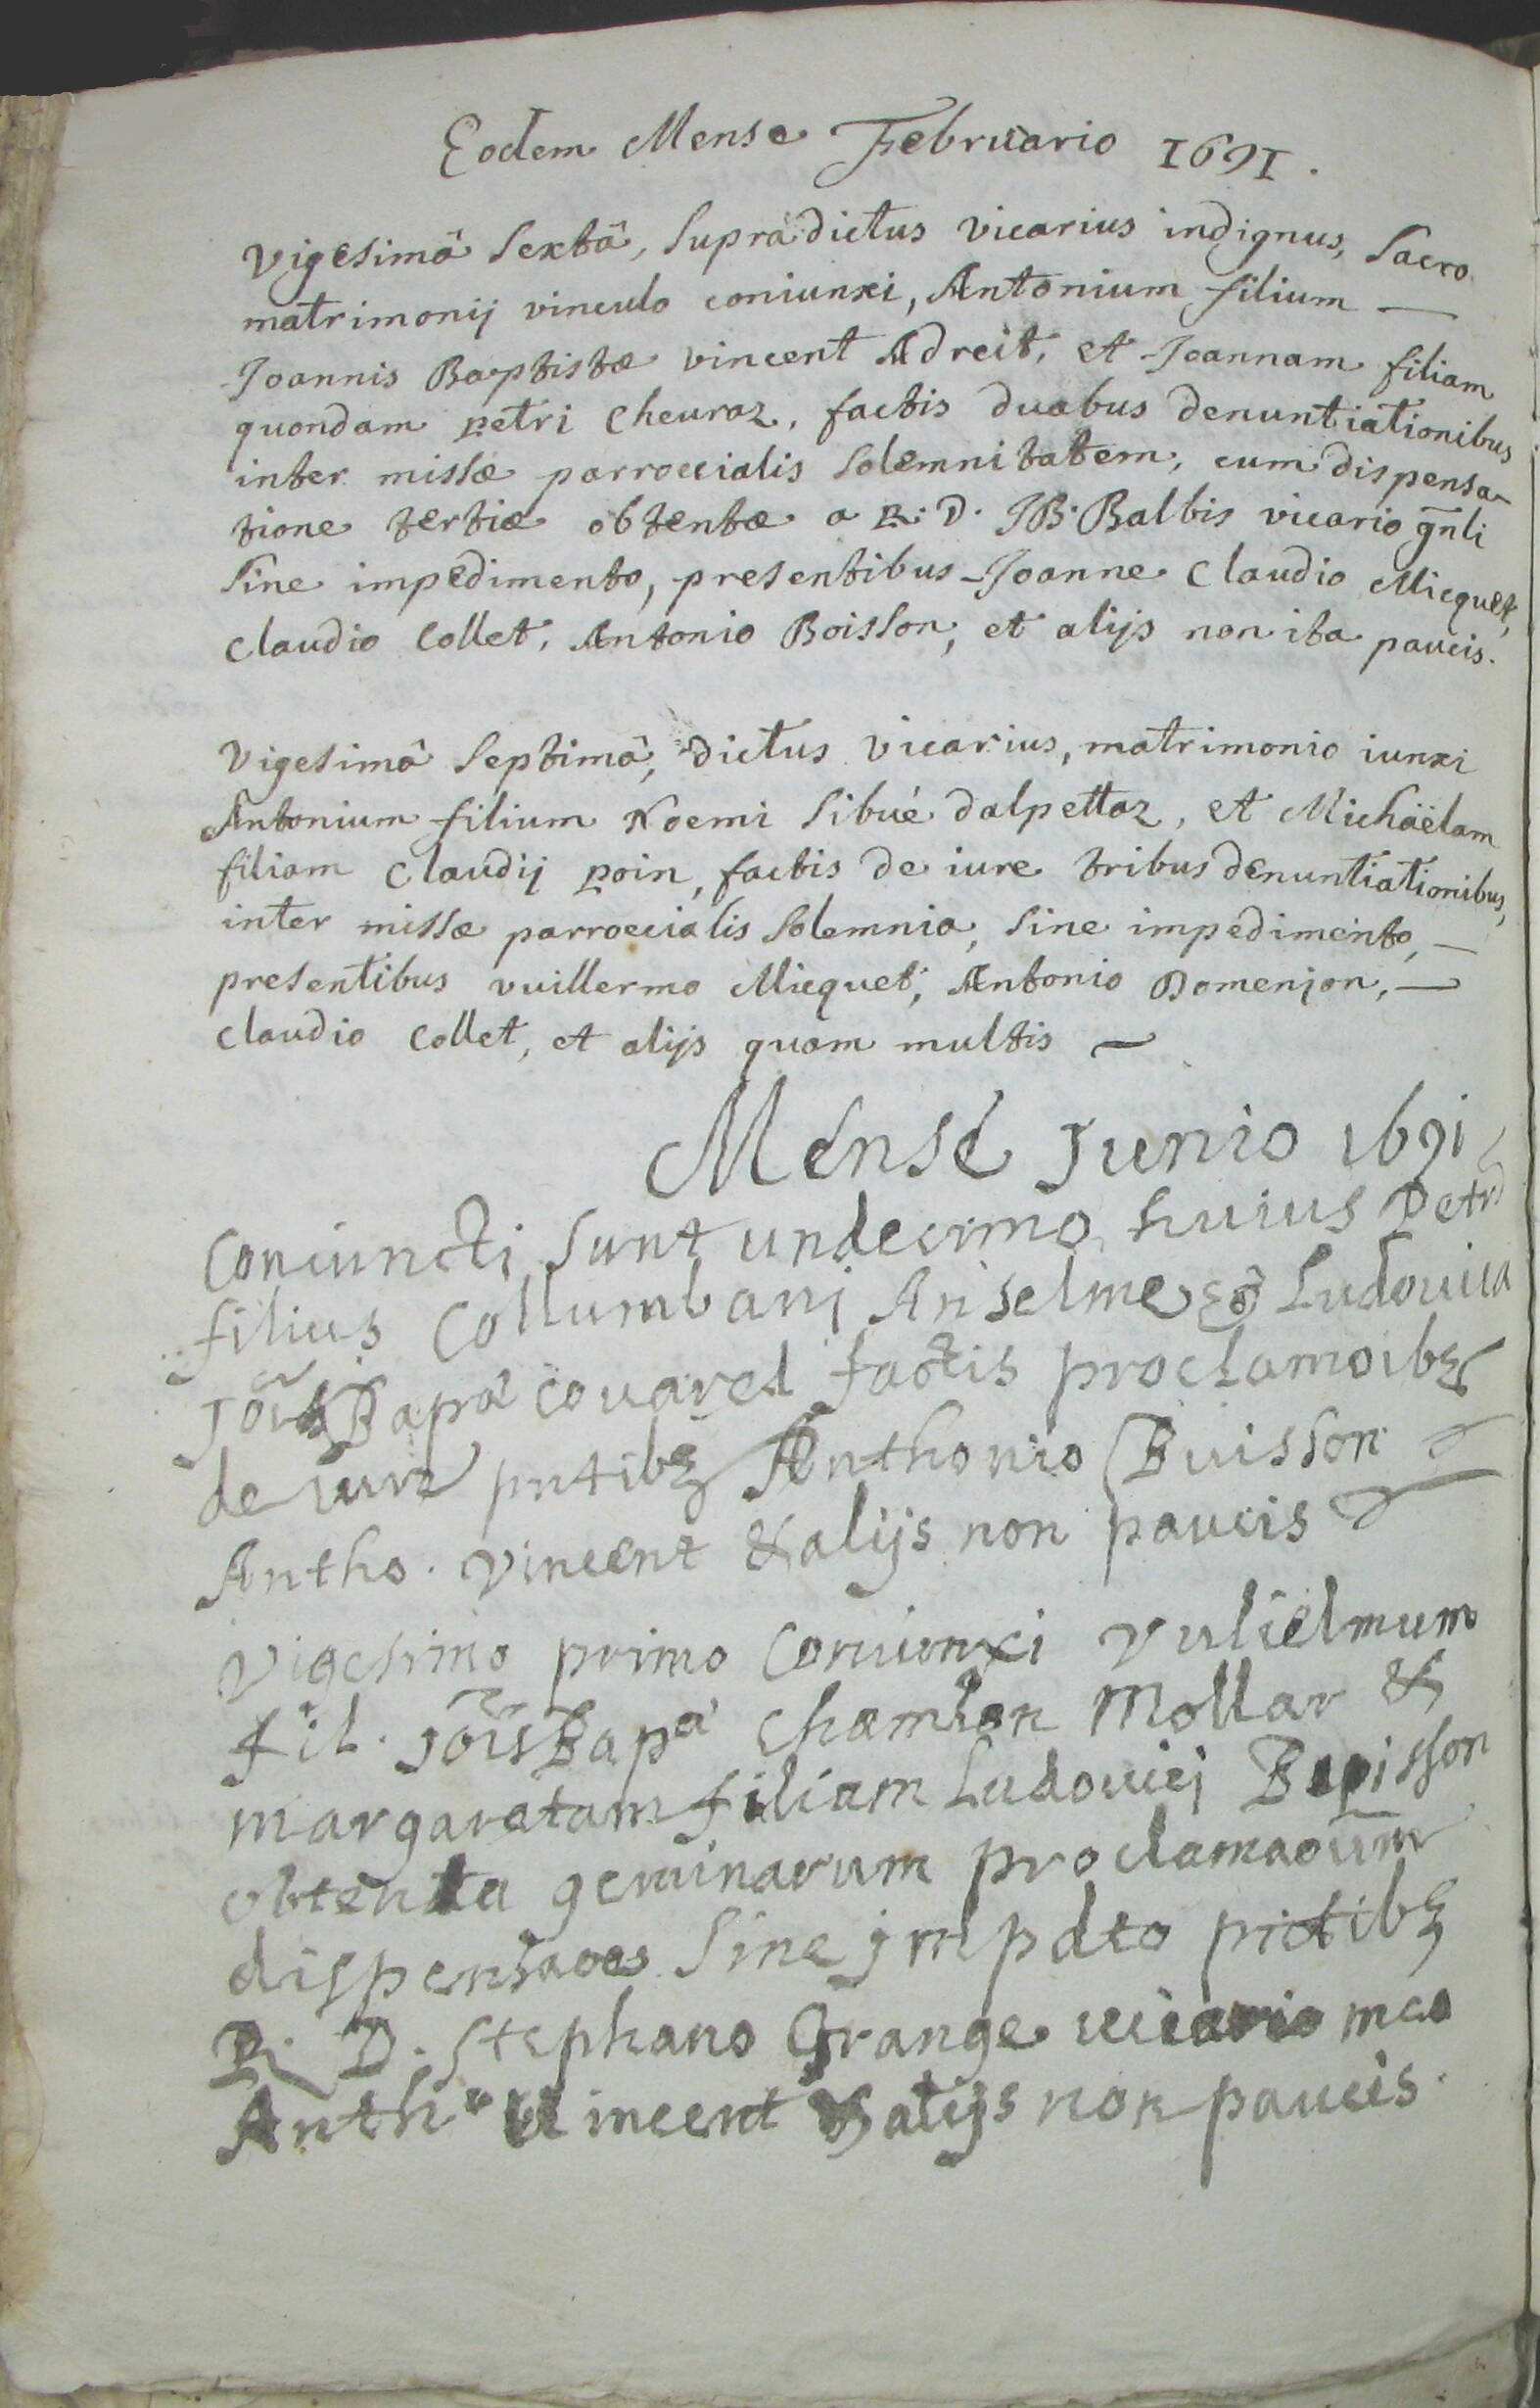 Eodem Mense Februario 1691.
Vigesimâ sextâ, supràdictus vicarius indignus, sacro
matrimonij vinculo coniunxi, Antonium filium —
Joannis Baptistæ vincent Adreit, et Joannam filiam
quondam petri Cheuraz, factis duabus denuntiationibus
inter missæ parroccialis solemnitatem, cum dispensa-
tione tertiæ obtentæ a R. D. JB. Balbis vicario gñli
sine impedimento, presentibus Joanne Claudio Micquet,
Claudio Collet, Antonio Boisson, et alijs non ita paucis.
Vigesimâ septimâ, dictus vicarius, matrimonio iunxi
Antonium filium Noemi sibué dalpettaz, et Michäelam
filiam Claudij poin, factis de iure tribus denuntiationibus,
inter missæ parroccialis solemnia, sine impedimento, —
presentibus vuillermo Micquet, Antonio Domenjon, —
Claudio Collet, et alijs quam multis ~
Mense Junio 1691
Coniuncti sunt undecimo huius Petrus
filius Collumbani Anselme & Ludouica
Jois Bapᵃ couarel factis proclamoibꝫ
de iure pntibꝫ Anthonio Buisson
Antho. Vincent & alijs non paucis
Vigesimo primo Coniunxi Vulielmum
fil. Jõis Bapᵃ Chambon Mollar &
margaretam filiam Ludouici Buisson
obtenta geminarum proclamaoum
dispensaoe sine jmpdto pntibꝫ
R. D. Stephano Grange vicario meo
Anthᵒ Vincent & alijs non paucis.